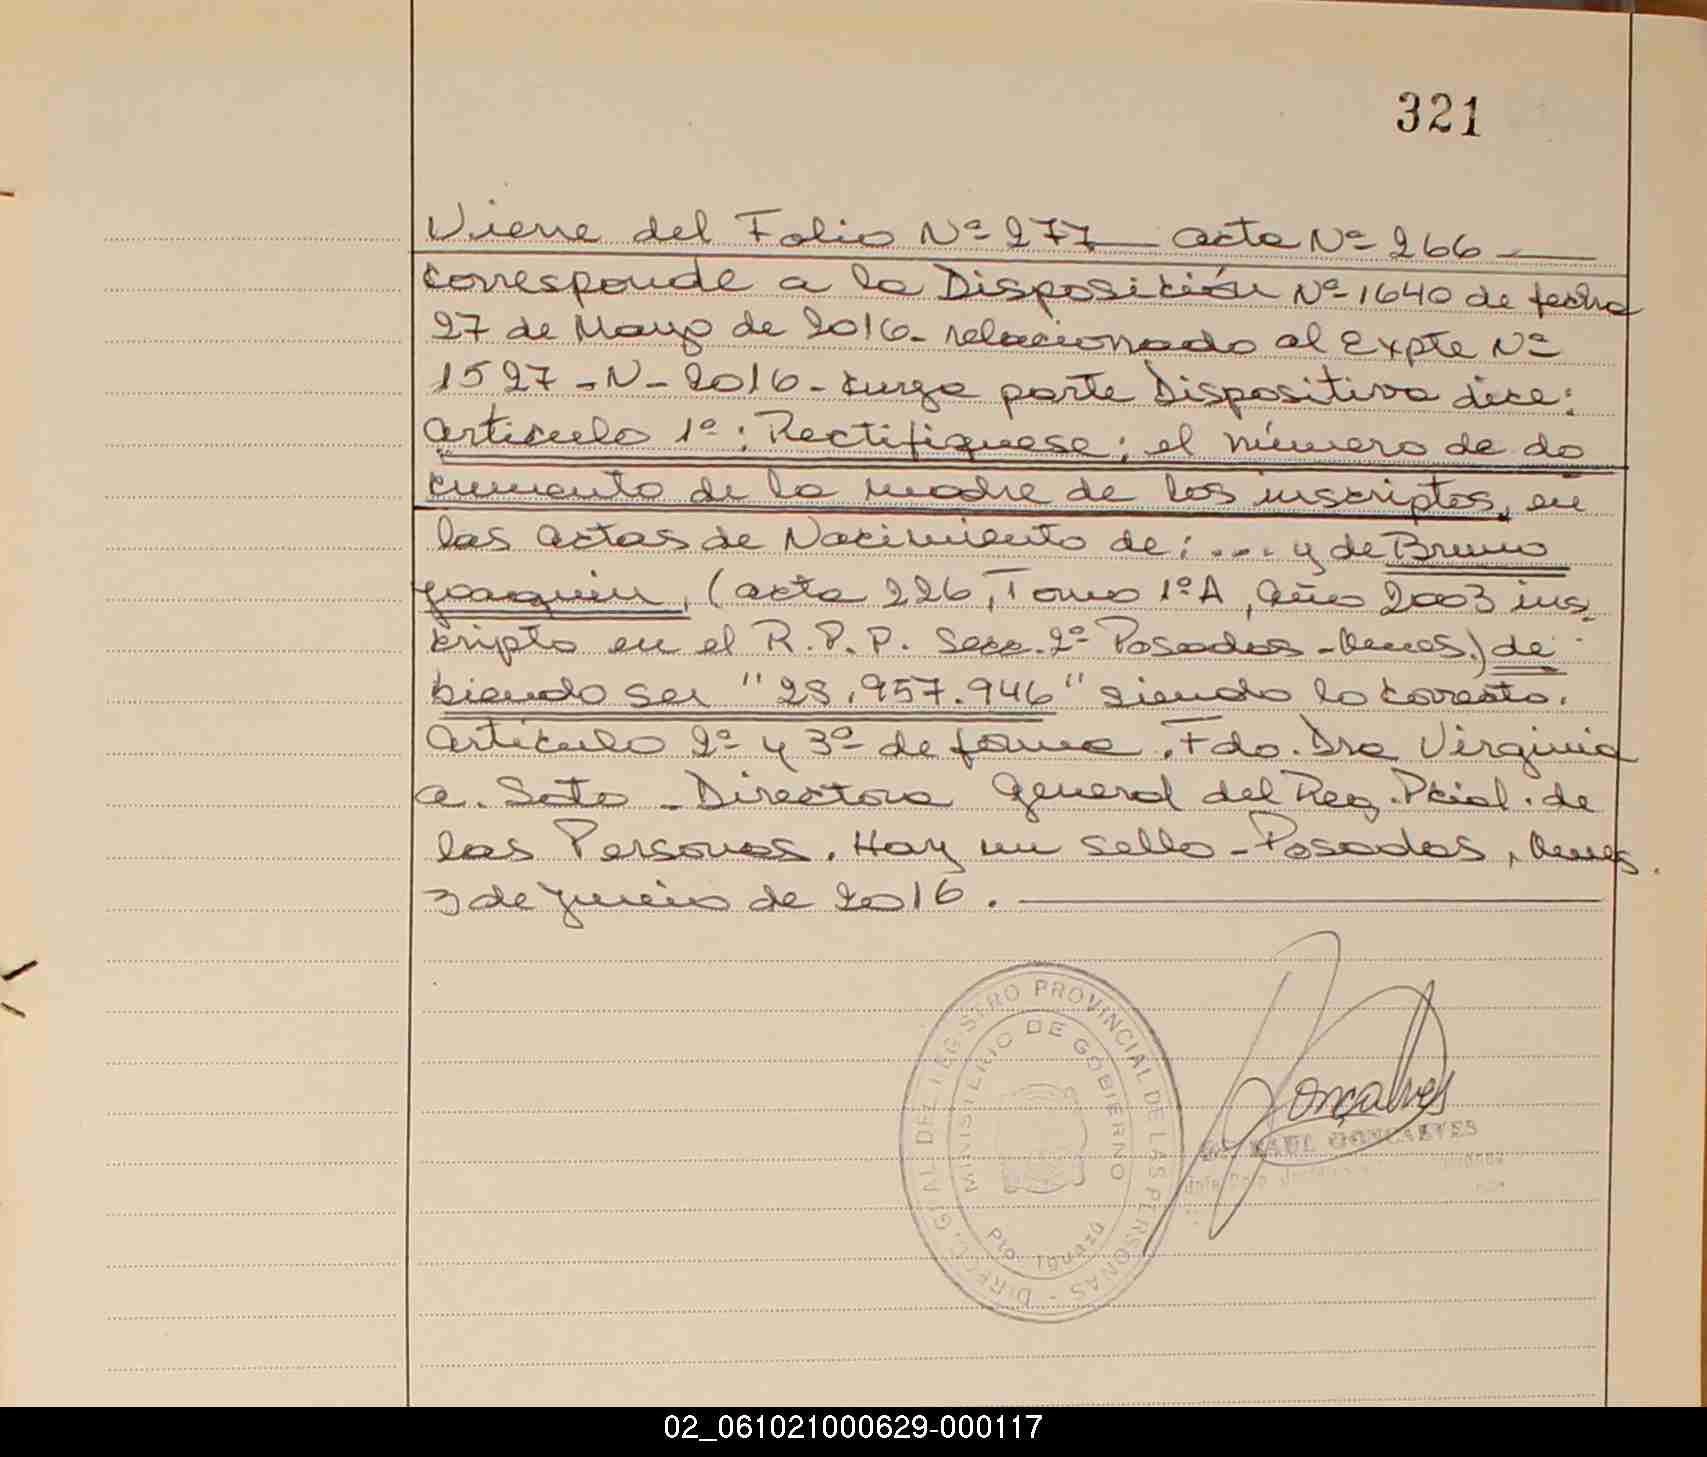 321
Viene del Folio Nº 277 — acta Nº 266 —
corresponde a la Disposición Nº 1640 de fecha
27 de Mayo de 2016 - relacionado al Expte Nº
1527 - N - 2016 - cuya parte Dispositiva dice:
articulo 1º: Rectifiquese; el número de do
cumento de la madre de los inscriptos, en
las actas de Nacimiento de: ... y de Bruno
Joaquin, (acta 226, Tomo 1º A, año 2003 ins
cripto en el R.P.P. Secc. 2º Posadas - Mnes.) de
biendo ser "28.957.946" siendo lo correcto.
articulo 2º y 3º de forma. Fdo. Dra Virginia
a. Soto - Directora General del Reg. Pcial. de
las Personas. Hay un sello - Posadas, Mnes.
3 de Junio de 2016.
DIRECC. GRAL DEL REGISTRO PROVINCIAL DE LAS PERSONAS -
MINISTERIO DE GOBIERNO
Pto. Iguazú
Gonçalves
RAUL GONCALVES
02_061021000629-000117